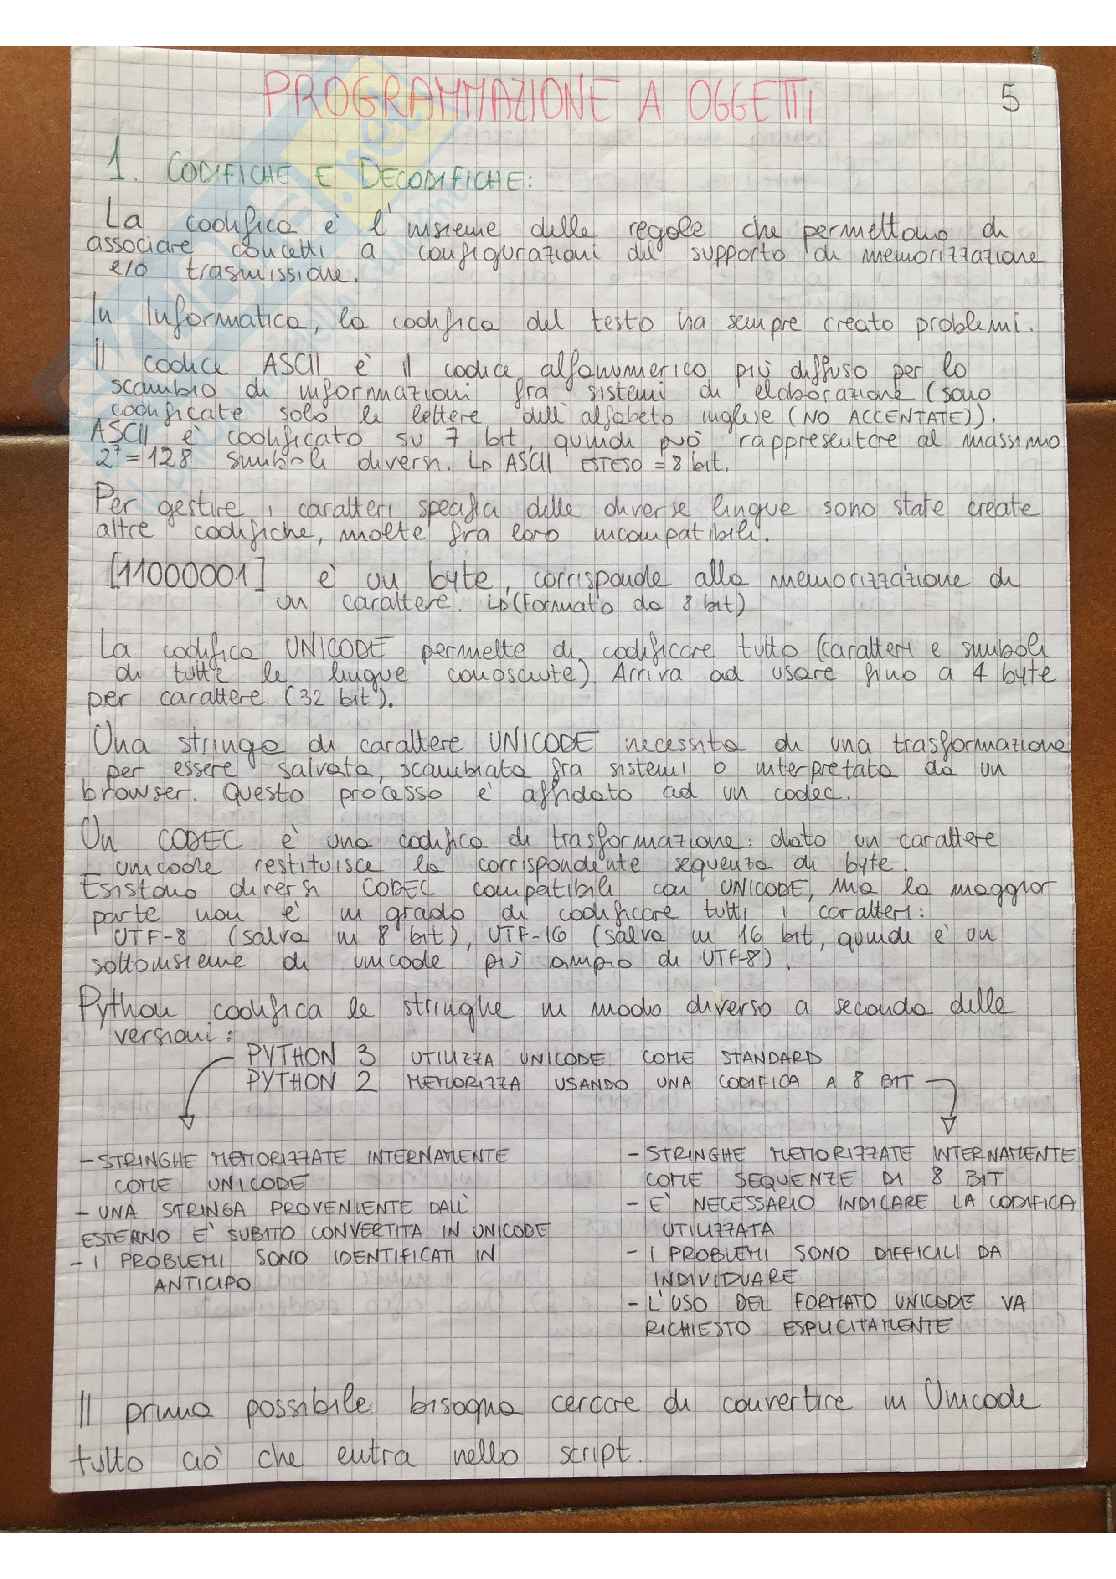 PROGRAMMAZIONE A OGGETTI
5
1. CODIFICHE E DECODIFICHE:
La codifica è l'insieme delle regole che permettono di
associare concetti a configurazioni del supporto di memorizzazione
e/o trasmissione.
In Informatica, la codifica del testo ha sempre creato problemi.
Il codice ASCII è il codice alfanumerico più diffuso per lo
scambio di informazioni fra sistemi di elaborazione (sono
codificate solo le lettere dell'alfabeto inglese (NO ACCENTATE)).
ASCII è codificato su 7 bit, quindi può rappresentare al massimo
2⁷=128 simboli diversi. ↳ ASCII ESTESO = 8 bit.
Per gestire i caratteri specifici delle diverse lingue sono state create
altre codifiche, molte fra loro incompatibili.
[11000001] è un byte, corrisponde alla memorizzazione di
un carattere. ↳(Formato da 8 bit)
La codifica UNICODE permette di codificare tutto (caratteri e simboli
di tutte le lingue conosciute). Arriva ad usare fino a 4 byte
per carattere (32 bit).
Una stringa di carattere UNICODE necessita di una trasformazione
per essere salvata, scambiata fra sistemi o interpretata da un
browser. Questo processo è affidato ad un codec.
Un CODEC è una codifica di trasformazione: dato un carattere
unicode restituisce la corrispondente sequenza di byte.
Esistono diversi CODEC compatibili con UNICODE, ma la maggior
parte non è in grado di codificare tutti i caratteri:
UTF-8 (salva in 8 bit), UTF-16 (salva in 16 bit, quindi è un
sottoinsieme di unicode più ampio di UTF-8).
Python codifica le stringhe in modo diverso a seconda delle
versioni:
PYTHON 3 UTILIZZA UNICODE COME STANDARD
PYTHON 2 MEMORIZZA USANDO UNA CODIFICA A 8 BIT
- STRINGHE MEMORIZZATE INTERNAMENTE
COME UNICODE
- UNA STRINGA PROVENIENTE DALL'
ESTERNO E' SUBITO CONVERTITA IN UNICODE
- I PROBLEMI SONO IDENTIFICATI IN
ANTICIPO
- STRINGHE MEMORIZZATE INTERNAMENTE
COME SEQUENZE DI 8 BIT
- E' NECESSARIO INDICARE LA CODIFICA
UTILIZZATA
- I PROBLEMI SONO DIFFICILI DA
INDIVIDUARE
- L'USO DEL FORMATO UNICODE VA
RICHIESTO ESPLICITAMENTE
Il prima possibile bisogna cercare di convertire in Unicode
tutto ciò che entra nello script.